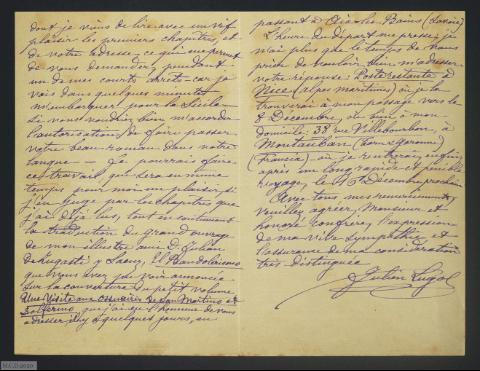 dont je viens de lire avec un vif
plaisir les premiers chapitres, et
de votre adresse, ce qui me permet
de vous demander, pendant
un de mes courts arrêts car je
vais dans quelques minutes
m'embarquer pour la Sicile —
Si vous voudriez bien m'accorder
l'autorisation de faire passer
votre beau roman dans notre
langue — Je pourrais faire
ce travail qui sera en même
temps pour moi un plaisir, si
j'en juge par les chapitres que
j'ai déjà lus, tout en continuant
la traduction du grand ouvrage
de mon illustre ami D. Julian
de Zugasti y Saenz, El Bandolerismo
que vous avez pu voir annoncée
sur la couverture du petit volume
Une Visite aux ossuaires de San Martino et
Solferino, que j'ai eu l'honneur de vous
adresser il y a quelques jours, en
passant à Aix-les-Bains (Savoie)
L'heure du départ me presse, je
n'ai plus que le temps de vous
prier de vouloir bien m'adresser
votre réponse: Poste restante à
Nice (Alpes maritimes) où je la
trouverai à mon passage vers le
8 Décembre, ou bien à mon
domicile: 38 rue Villebourbon, à
Montauban (Tarn & Garonne)
(Francia) où je rentrerai, enfin,
après un long, rapide et pénible
voyage, le Décembre prochain
Avec tous mes remerciements,
veuillez agréer, Monsieur et
honoré confrère, l'expression
de ma vive sympathie et
l'assurance de ma considération
très distinguée
Julien Lugol